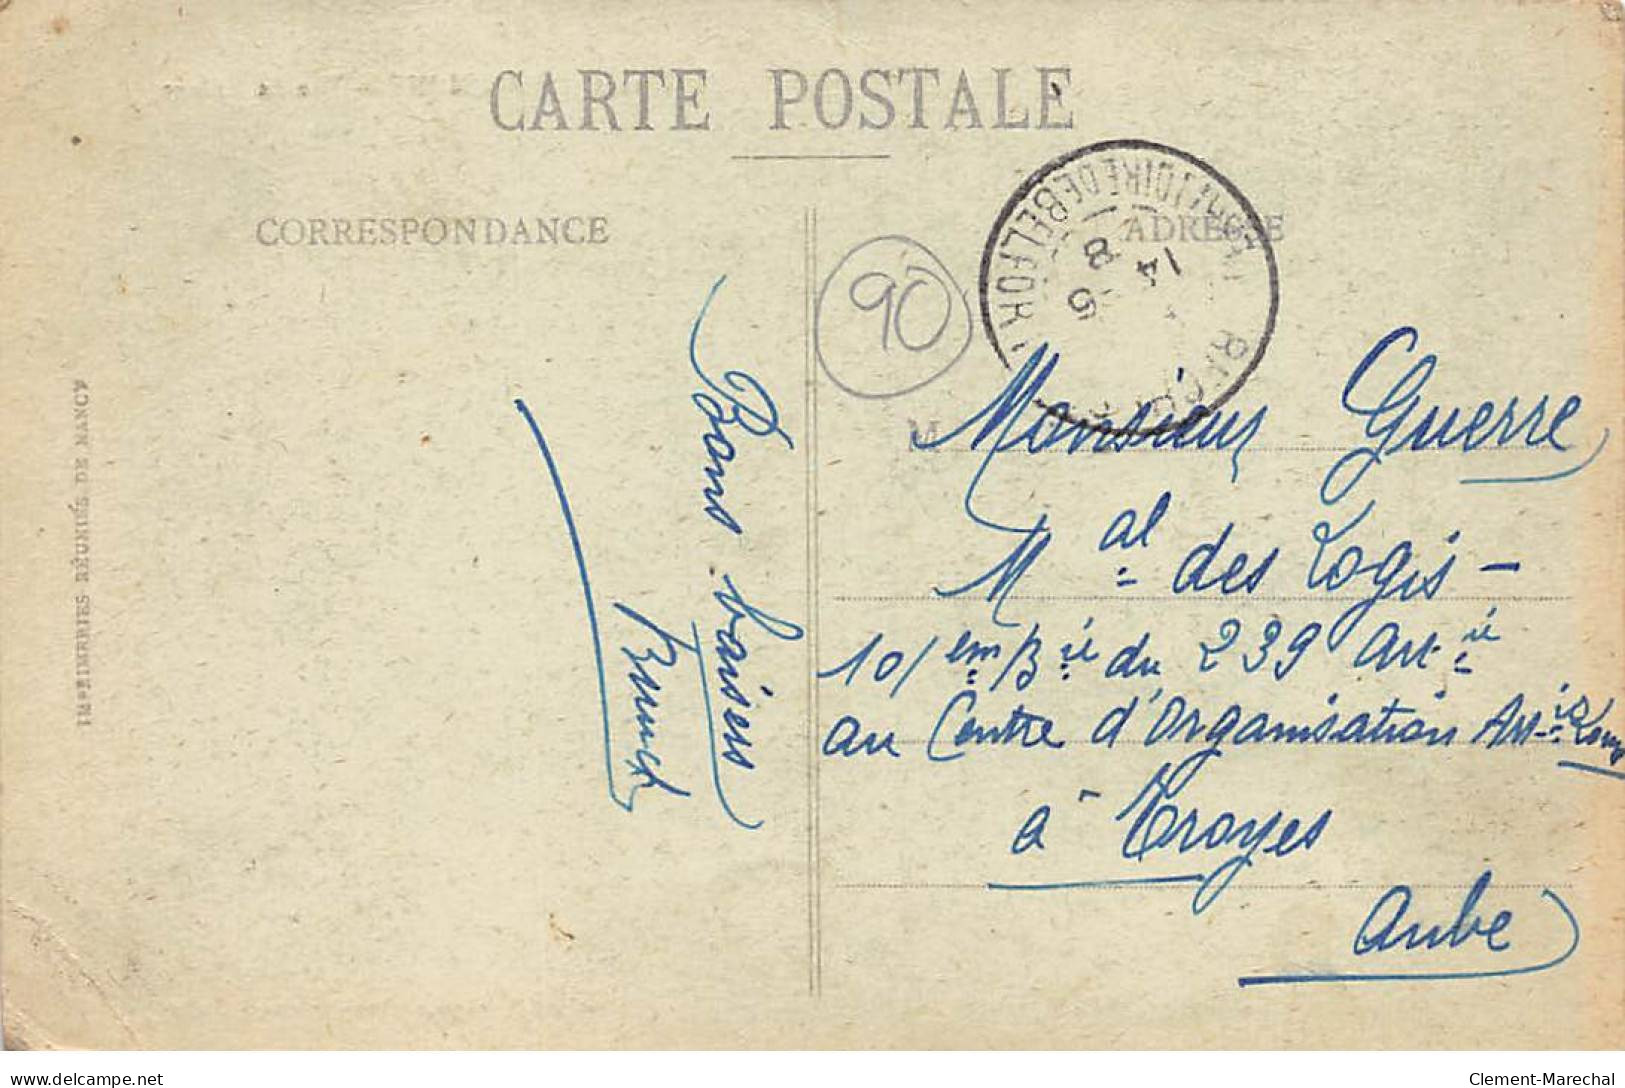 CARTE POSTALE
CORRESPONDANCE
ADRESSE
90
TERRITOIRE DE BELFORT
14
8
5
IMPRIMERIES RÉUNIES DE NANCY
Bons baisers
M
Monsieur Guerre
Mal des Logis -
101em Bie du 239 Artie
au Centre d'Organisation Artie
à Troyes
Aube
www.delcampe.net
Clement-Marechal